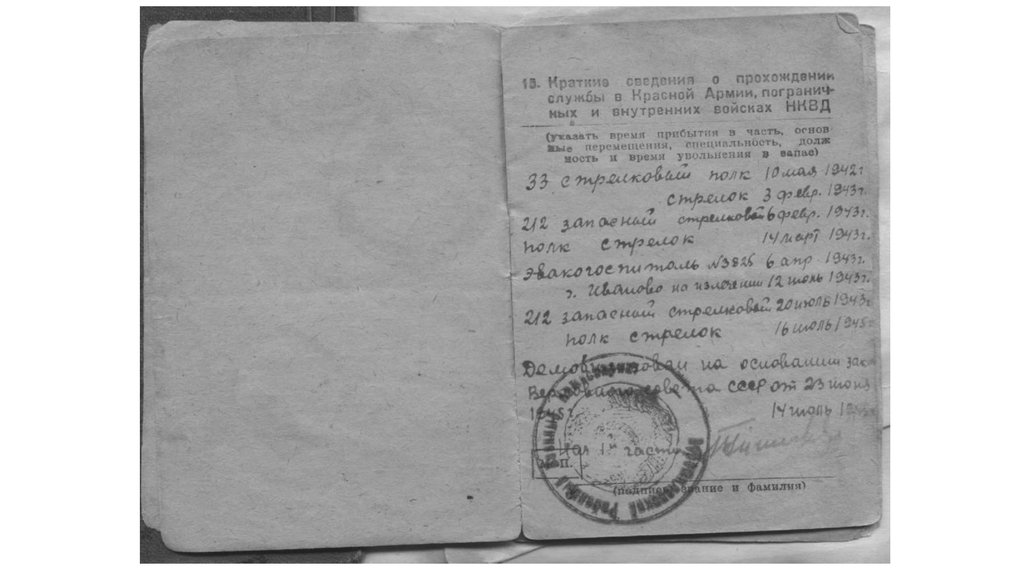 15. Краткие сведения о прохождении
службы в Красной Армии, погранич-
ных и внутренних войсках НКВД
(указать время прибытия в часть, основ
ные перемещения, специальность, долж
ность и время увольнения в запас)
33 стрелковый полк 10 мая 1942 г.
стрелок 3 февр. 1943 г.
212 запасный стрелковой 6 февр. 1943 г.
полк стрелок 14 март 1943 г.
Эвакогоспиталь №3825 6 апр 1943 г.
г. Иваново на излечении 12 июнь 1943 г.
212 запасный стрелковой 20 июль 1943 г.
полк стрелок 16 июль 1945
Демобилизован на основании зак
Верховного совета СССР от 23 июня
1945 г. 14 июль
Нач 1й части
М.П.
(подпись, звание и фамилия)
Районный